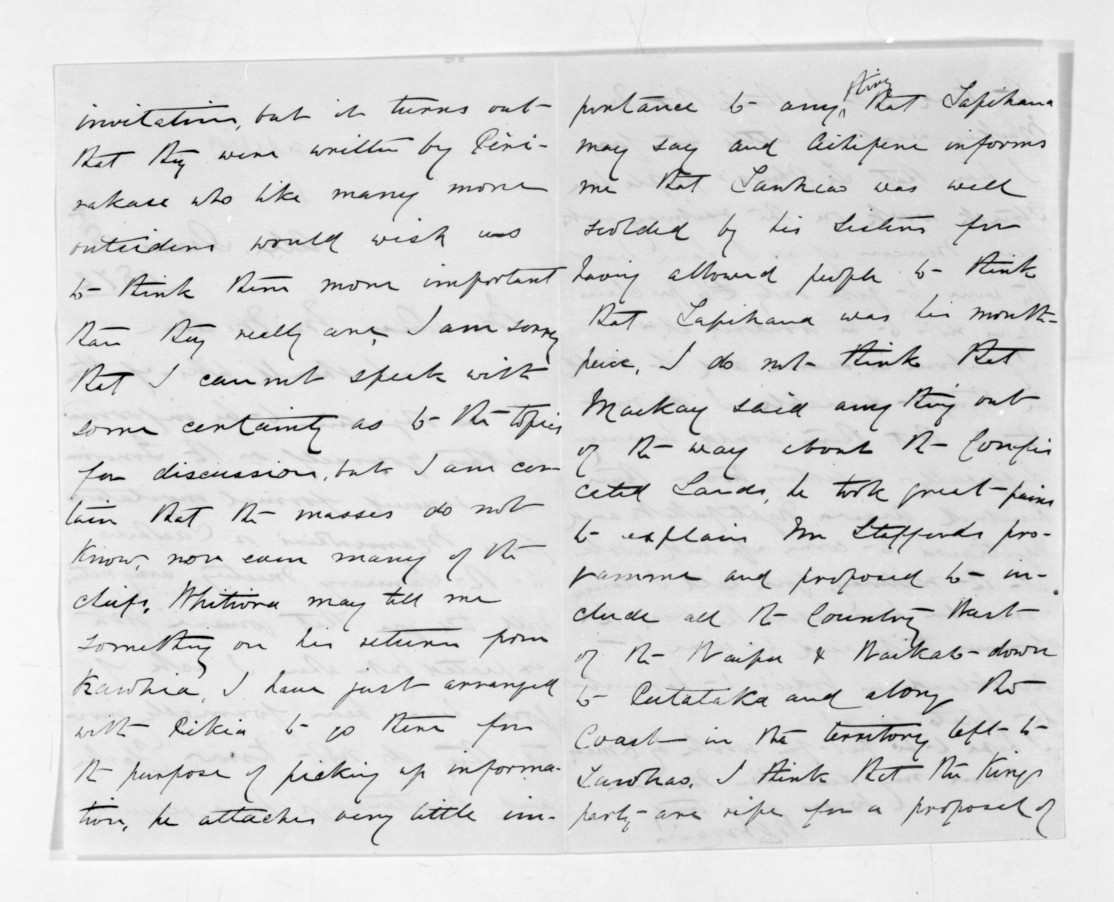 invitation, but it turns out
that they were written by Piri-
rakau who like many more
outsiders would wish us
to think them more important
than they really are, I am sorry
that I cannot speak with
some certainty as to the topics
for discussion, but I am cer-
tain that the masses do not
know, nor even many of the
chiefs, Whitiora may tell me
something on his return from
Kawhia, I have just arranged
with Pikia to go there for
the purpose of picking up informa-
tion, he attaches very little im-
portance to any thing that Tapihana
may say and Aitipene informs
me that Tawhiao was well
scolded by his Sisters for
having allowed people to think
that Tapihana was his mouth-
peice, I do not think that
Mackay said any thing out
of the way about the Confis
cated Lands, he took great pains
to explain Mr Staffords pro-
gramme and proposed to in-
clude all the Country West
of the Waipa & Waikato down
to Putataka and along the
Coast in the territory left to
Tawhiao. I think that the Kings
party are ripe for a proposal of